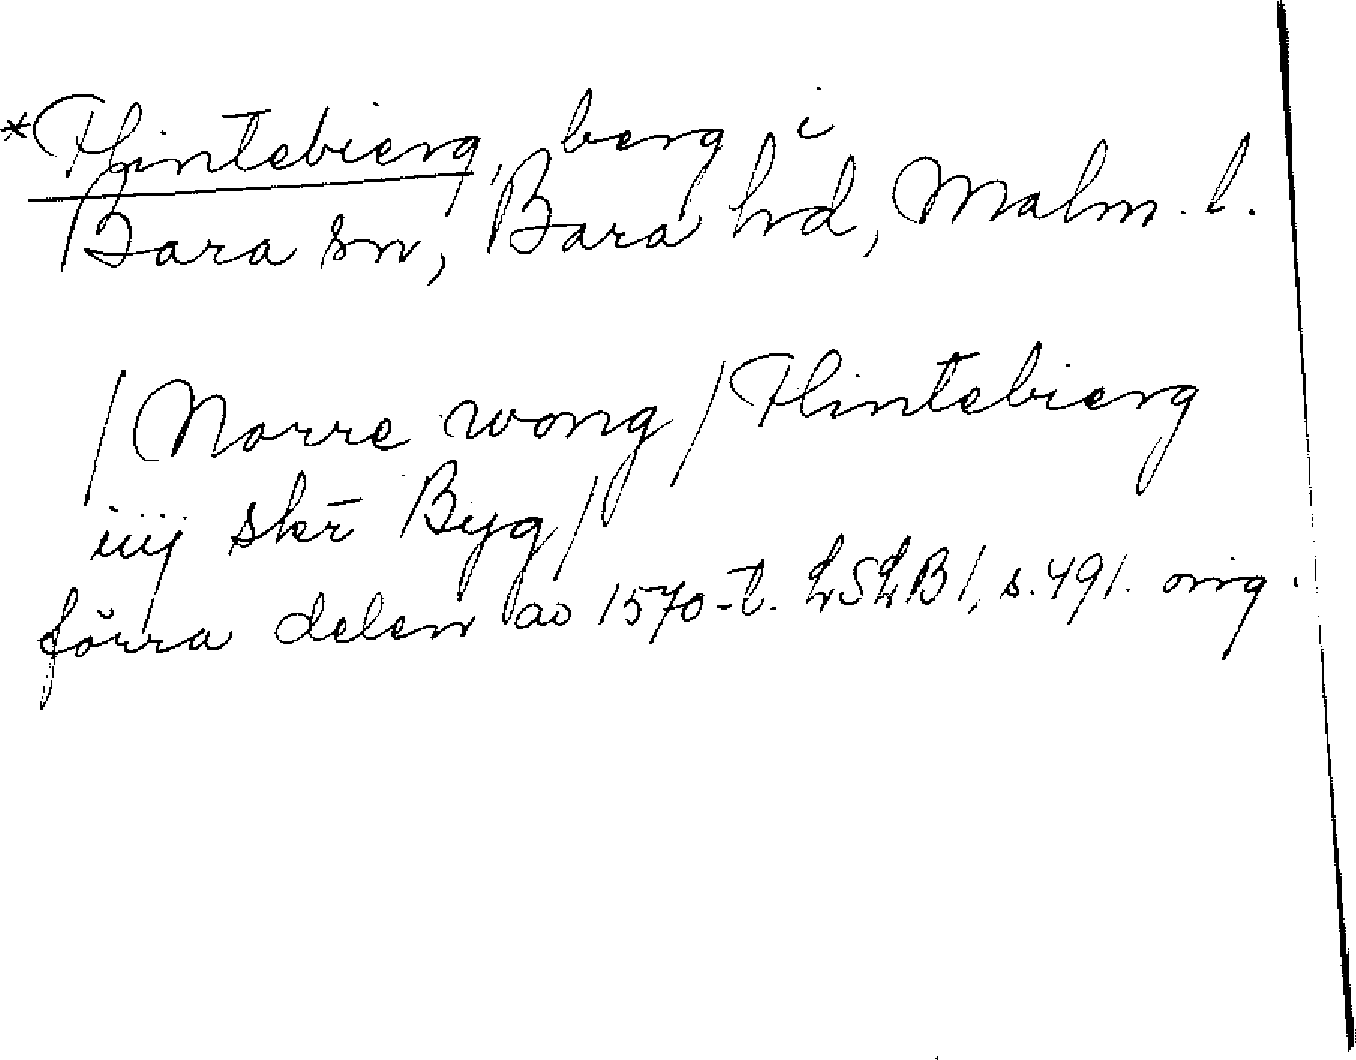 *Flintebierg, berg i
Bara sn, Bara hd, Malm. l.
/Norre wong/ Flintebierg
iiij skr̄ Byg/
förra delen av 1570-t. LSLB 1, s. 491. orig.